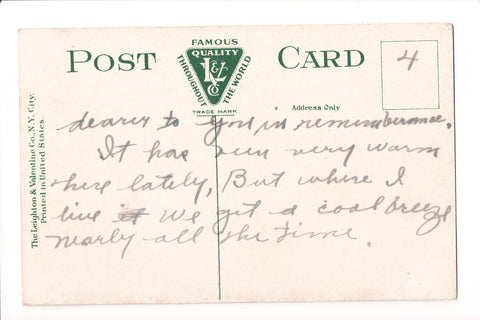 FAMOUS
QUALITY
THROUGHOUT THE WORLD
L & V Co
TRADE MARK
POST CARD
4
Address Only
The Leighton & Valentine Co., N.Y. City.
Printed in United States.
dearer to you in rememberance.
It has been very warm
here lately, But where I
live it We get a cool breeze
nearly all the time.